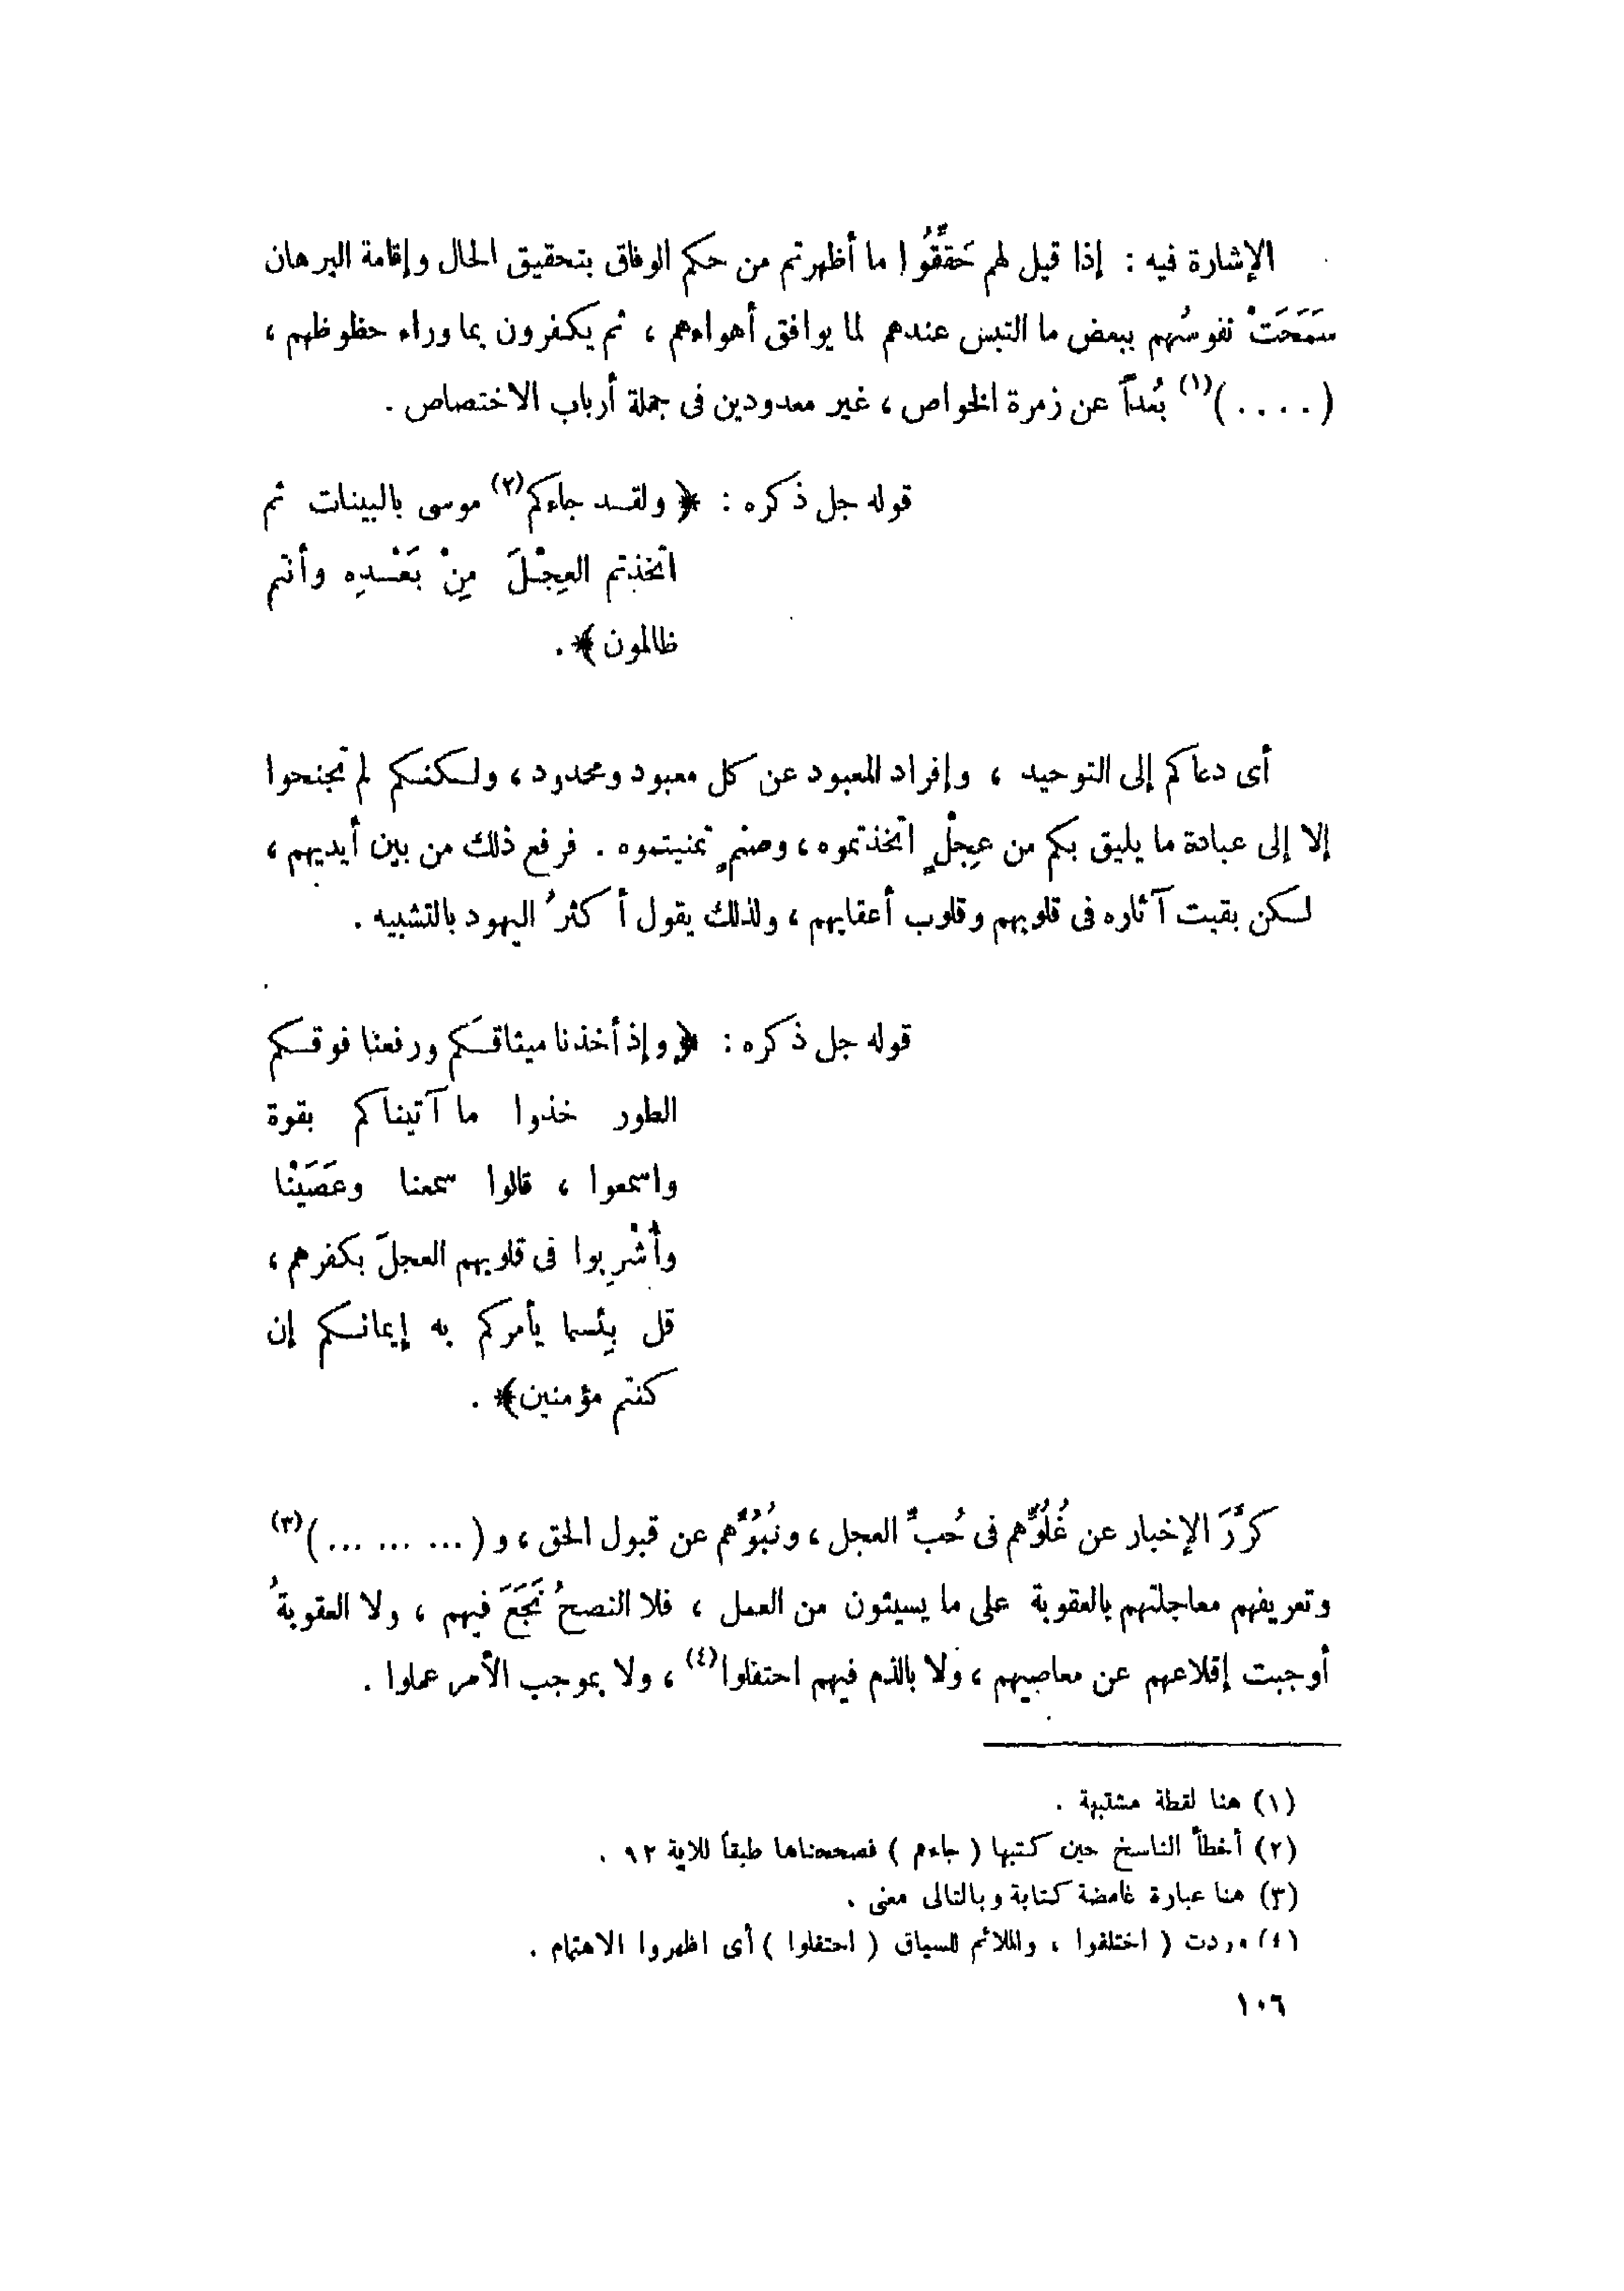 الإشارة فيه : إذا قيل لهم حَقِّقُوا ما أظهرتم من حكم الوفاق بتحقيق الحال وإقامة البرهان
سَمَحَتْ نفوسُهم ببعض ما التبس عندهم لما يوافق أهواءهم ، ثم يكفرون بما وراء حظوظهم ،
( . . . . )(١) بُعداً عن زمرة الخواص ، غير معدودين فى جملة أرباب الاختصاص .
قوله جل ذكره : ﴿ ولقد جاءكم(٢) موسى بالبينات ثم
اتخذتم العِجْلَ مِنْ بَعْدِه وأنتم
ظالمون ﴾ .
أى دعاكم إلى التوحيد ، وإفراد المعبود عن كل معبود ومحدود ، ولكنكم لم تجنحوا
إلا إلى عبادة ما يليق بكم من عِجْلٍ اتخذتموه ، وصنمٍ تمنيتموه . فرفع ذلك من بين أيديهم ،
لكن بقيت آثاره فى قلوبهم وقلوب أعقابهم ، ولذلك يقول أكثرُ اليهود بالتشبيه .
قوله جل ذكره : ﴿ وإذ أخذنا ميثاقَكم ورفعنا فوقكم
الطور خذوا ما آتيناكم بقوة
واسمعوا ، قالوا سمعنا وعَصَيْنا
وأُشْرِبوا فى قلوبهم العجلَ بكفرهم ،
قل بِئسما يأمركم به إيمانكم إن
كنتم مؤمنين ﴾ .
كرَّرَ الإخبار عن غُلُوِّهم فى حُبِّ العجل ، ونُبُوِّهم عن قبول الحق ، و ( ... ... ... )(٣)
وتعريفهم معاجلتهم بالعقوبة على ما يسيئون من العمل ، فلا النصحُ نَجَعَ فيهم ، ولا العقوبةُ
أوجبت إقلاعهم عن معاصيهم ، ولا بالذم فيهم احتفلوا(٤) ، ولا بموجب الأمر عملوا .
(١) هنا لفظة مشتبهة .
(٢) أخطأ الناسخ حين كتبها ( جاءهم ) فصححناها طبقاً للآية ٩٢ .
(٣) هنا عبارة غامضة كتابة وبالتالى معنى .
(٤) وردت ( اختلفوا ، والملائم للسياق ( احتفلوا ) أى اظهروا الاهتمام .
١٠٦